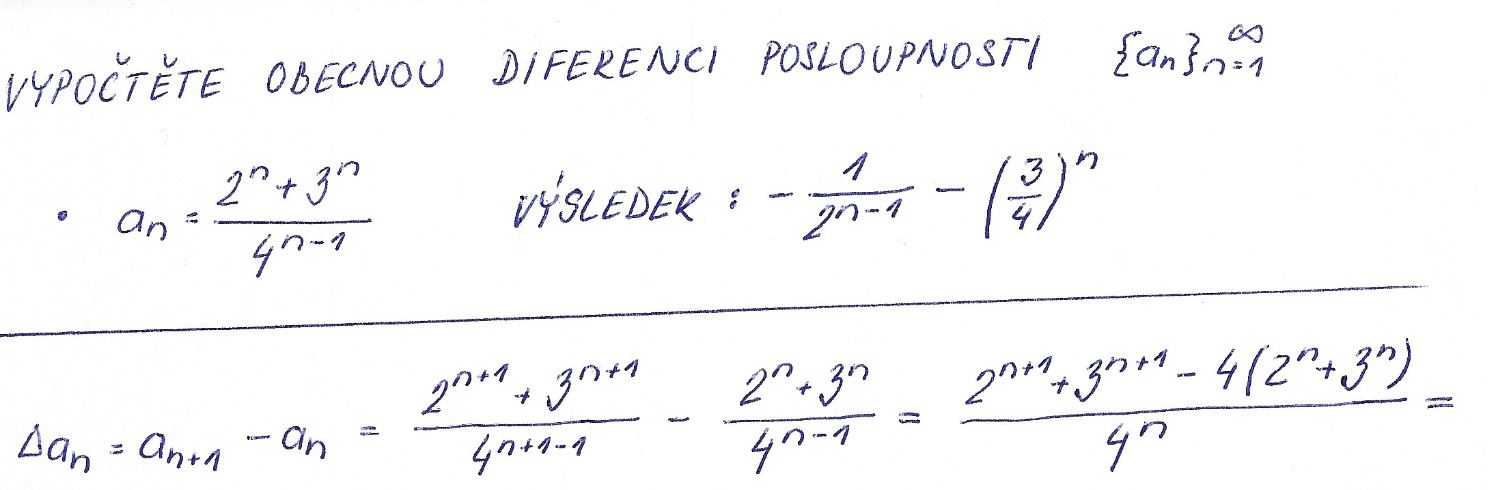 VYPOČTĚTE OBECNOU DIFERENCI POSLOUPNOSTI {aₙ}ₙ₌₁^∞
• aₙ = (2ⁿ + 3ⁿ)/(4ⁿ⁻¹) VÝSLEDEK : - 1/(2ⁿ⁻¹) - (3/4)ⁿ
Δaₙ = aₙ₊₁ - aₙ = (2ⁿ⁺¹ + 3ⁿ⁺¹)/(4ⁿ⁺¹⁻¹) - (2ⁿ + 3ⁿ)/(4ⁿ⁻¹) = (2ⁿ⁺¹ + 3ⁿ⁺¹ - 4(2ⁿ + 3ⁿ))/(4ⁿ) =